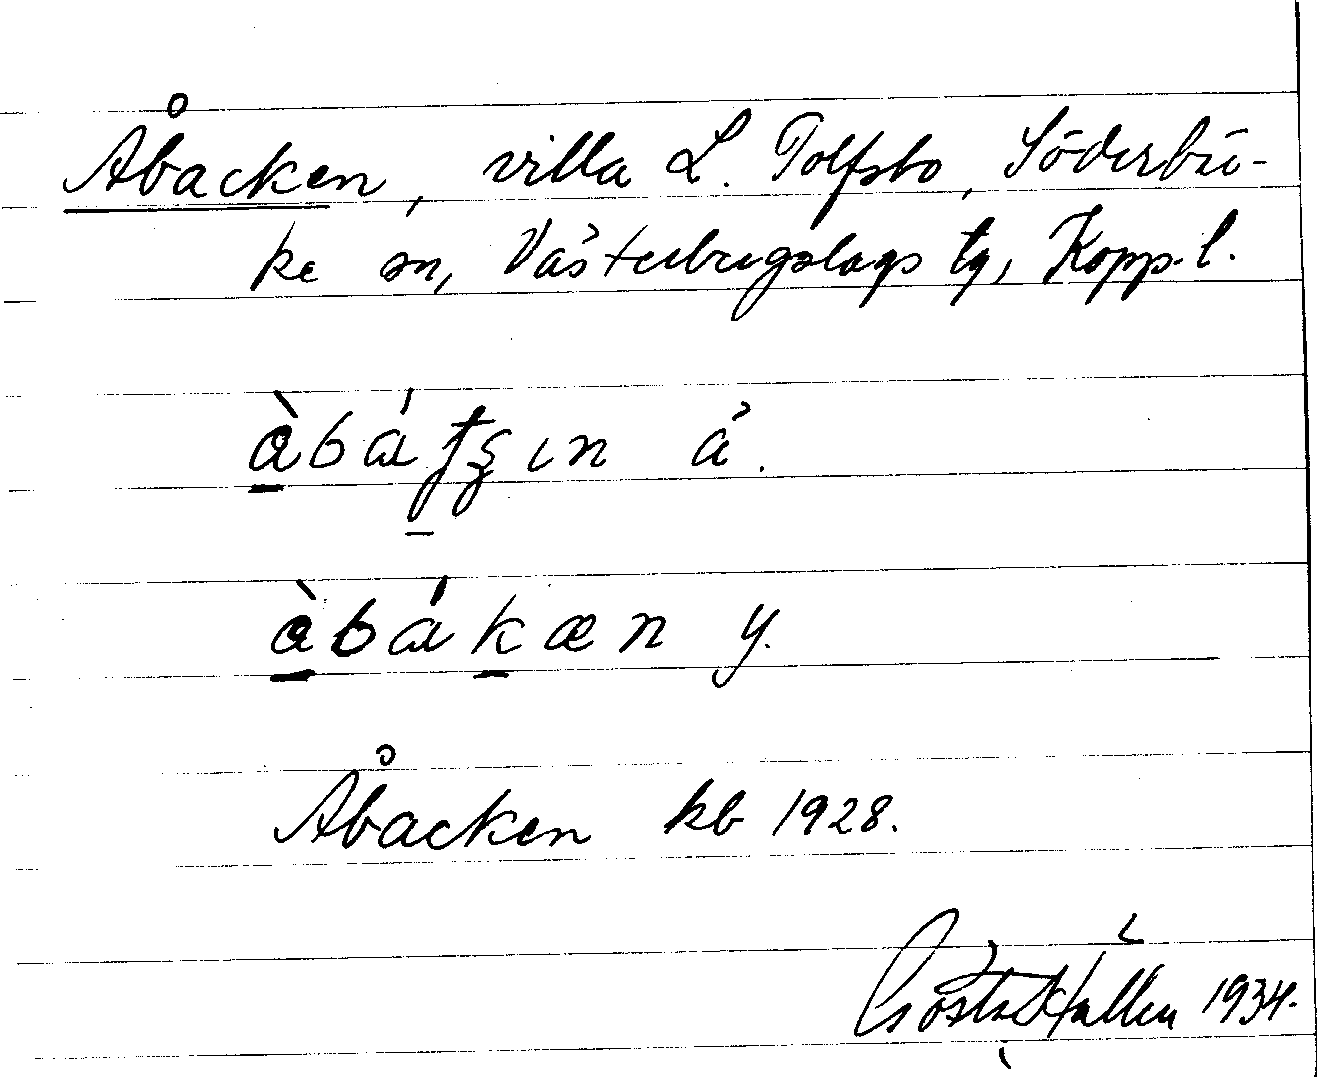 Åbacken, villa L. Tolfsbo, Söderbär-
ke sn, Västerbergslags tg, Kopp. l.
å.
y.
Åbacken kb 1928.
Gösta Hallén 1934.